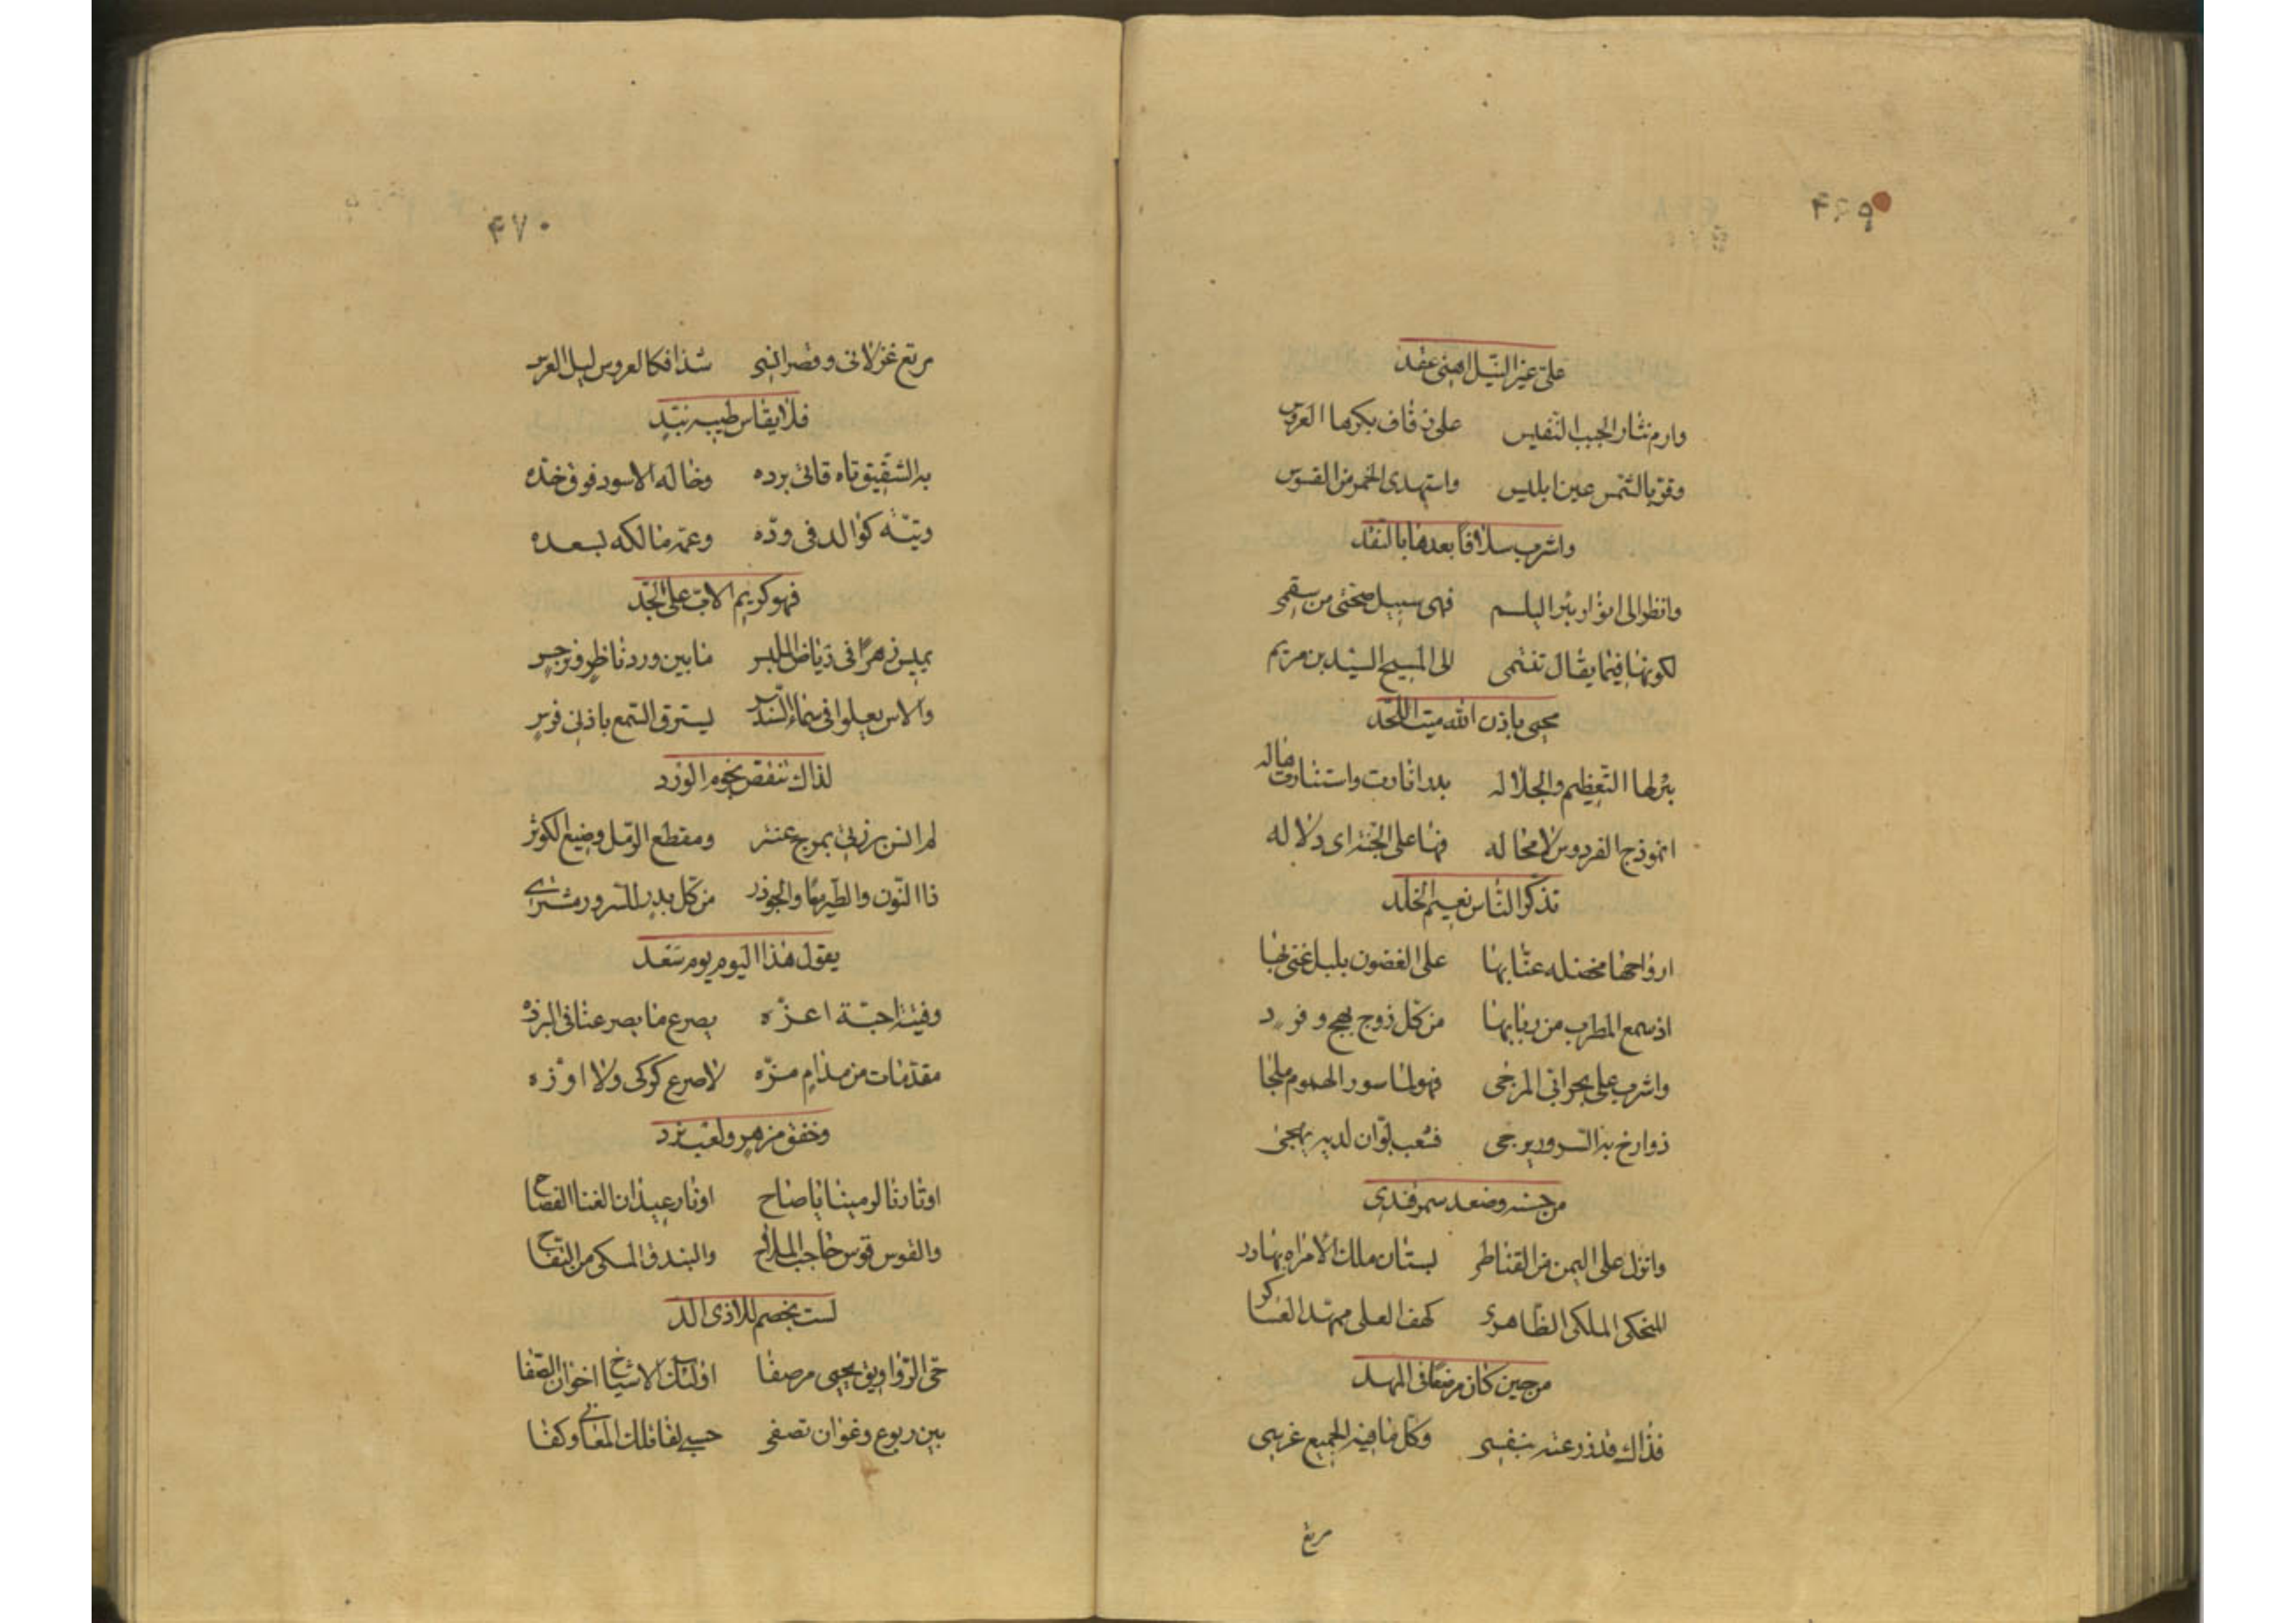 ۴۶۹
على عيز النيل اهنى عقد
وارم نثار الحبب النفيس على زفاف بكرها العروس
وقرّ بالشمس عين ابليس واستهدى الخمر من القسوس
واشرب سلافًا بعدها بالنقد
وانظر الى انوار بئر البلسم فهى سبيل صحتى من سقمى
لكونها فيما يقال تنتمى الى المسيح السيد بن مريم
محيى باذن الله ميت اللحد
بئر لها التعظيم والجلاله بدر انارت واستنارت هاله
انموذج الفردوس لا محاله فها على الجنة اى دلاله
تذكر الناس نعيم الخلد
ارواحها مخضله عنابها على الغضون بلبل غنى بها
اذ سمع المطرب من ربابها من كل زوج بهج وفرد
واشرب على بحرانى المرخى فهو لنا سور الهموم ملجا
ذوارخ به السرور يرجى فشعب بوان لديه يهجى
من حسنه وصغد سمرقندى
وانزل على اليمن من القناطر بستان ملك الامراء بهادر
المنجكى الملكى الظاهرى كهف العلى ممهد العساكر
من حين كان مرضعًا فى المهد
فذاك قد زرعته بنفسى وكل ما فيه الجميع غرسى
مرتع
۴۷۰
مرتع غزلانى وقصر انسى شذا فكا العروس ليل العرس
فلا يقاس طيبه بند
به الشقيق تاه قانى برده وخاله الاسود فوق خده
وتينه كوالد فى وده وعمه مالكه بسعده
فهو كريم الاب على الجد
يميس زهرًا فى رياض الملبس ما بين ورد ناظر ونرجس
والاس يعلوا فى سماء السندس ليسترق السمع باذنى فرس
لذاك تنقض نجوم الورد
لم انس برزتى بمرج عنتر ومقطع الرمل وضيغ الكوثر
ذا النون والطير معا والجوذر من كل بدر للسرور مشترى
يقول هذا اليوم يوم سعد
وفيتة احبة اعزه بصرع ما بصر عنا فى البرزه
مقدمات من مدام مزه لا صرع كوكى ولا اوزه
وخفق مزهر ولعب نرد
اوتارنا لرمينا يا صاح اوتار عيدان الغنا الفصاح
والقوس قوس حاجب الملاح والبندق المسكى من التفاح
لست بخصم للاذى الد
حى الرواويق بحيى مرصفا اولئك الاشياخ اخوان الصفا
بين ربوع وغوان تصفى حسبى لقا تلك المغانى وكفا